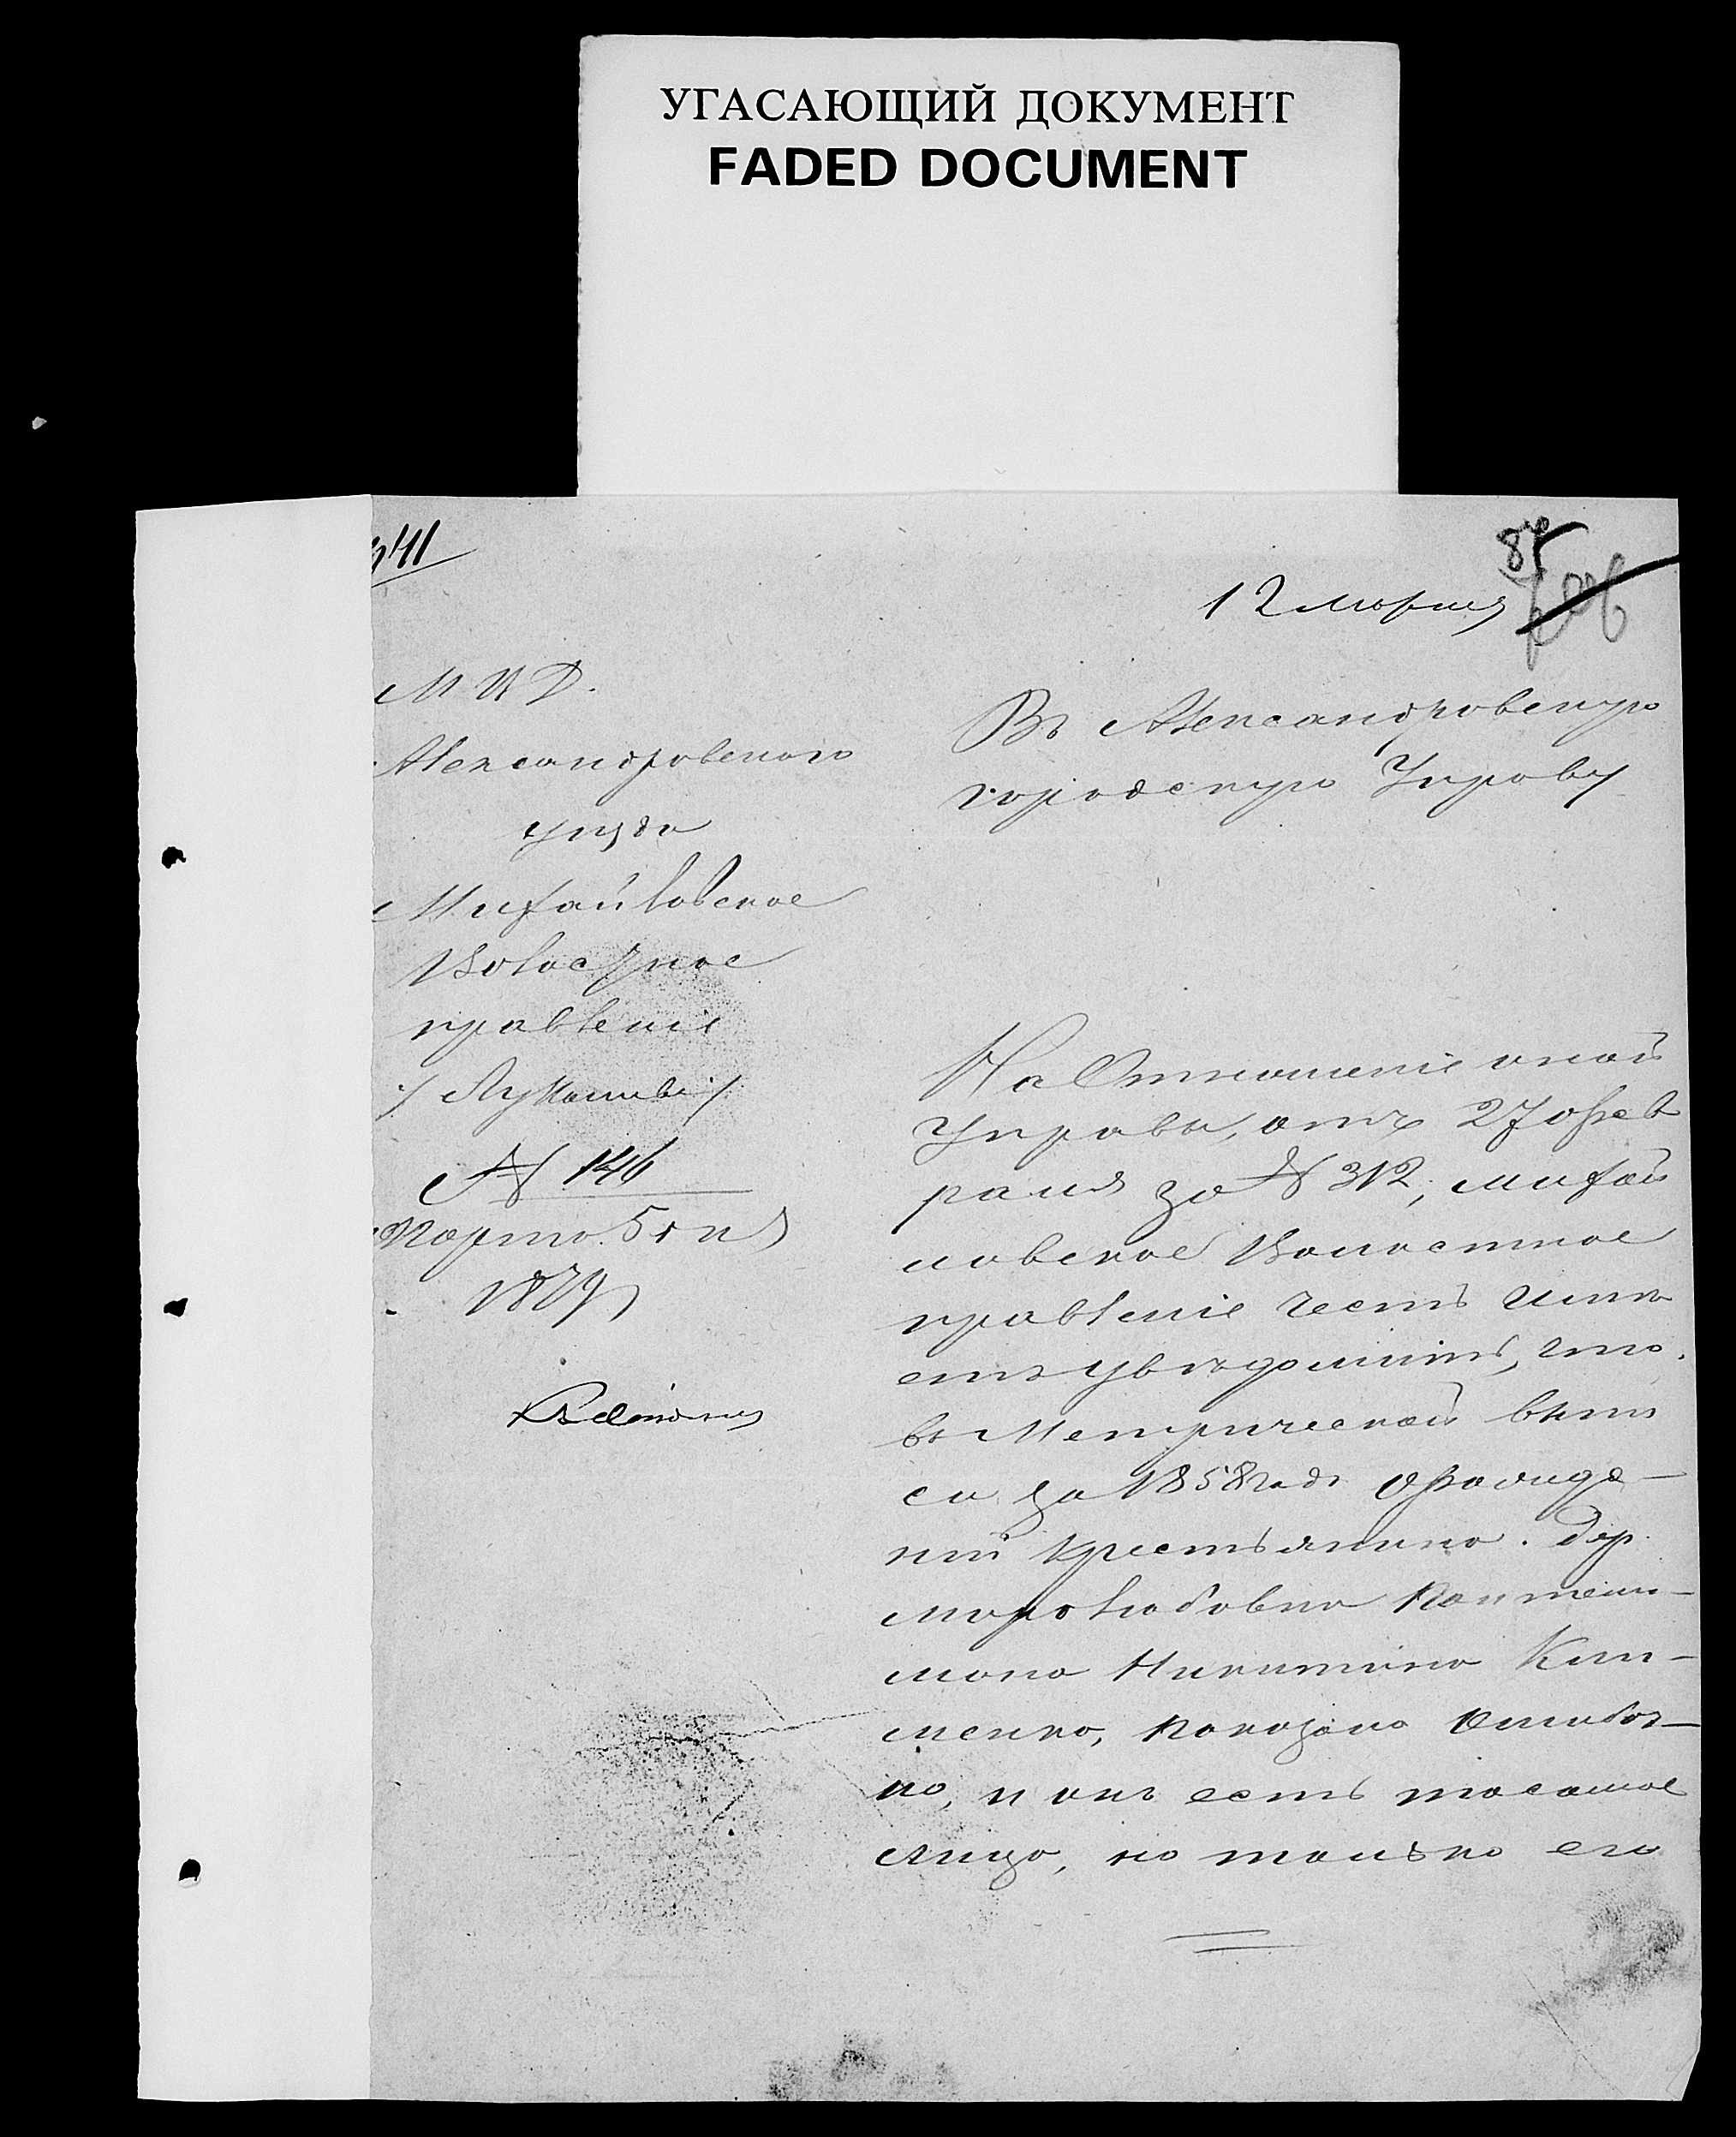 УГАСАЮЩИЙ ДОКУМЕНТ
FADED DOCUMENT
941
87
12 марта
М. В. Д.
Александровскаго
уѣзда
Михайловское
Волостное
правленіе
/: Лукашево :/
№ 146
Марта 5 дня
1879
Въ Александровскую
городскую Управу
На Отношеніе оной
Управы, отъ 27 фев
раля за № 312, Михай
ловское Волостное
правленіе честь имѣ
етъ увѣдомить, что
въ Метрической выпи
си за 1858 годъ
крестьянина. дер.
Миролюбовка Пантели-
мона Никитина Кли-
менко, показана ошибоч-
но, и онъ есть тосамое
лицо, но только его